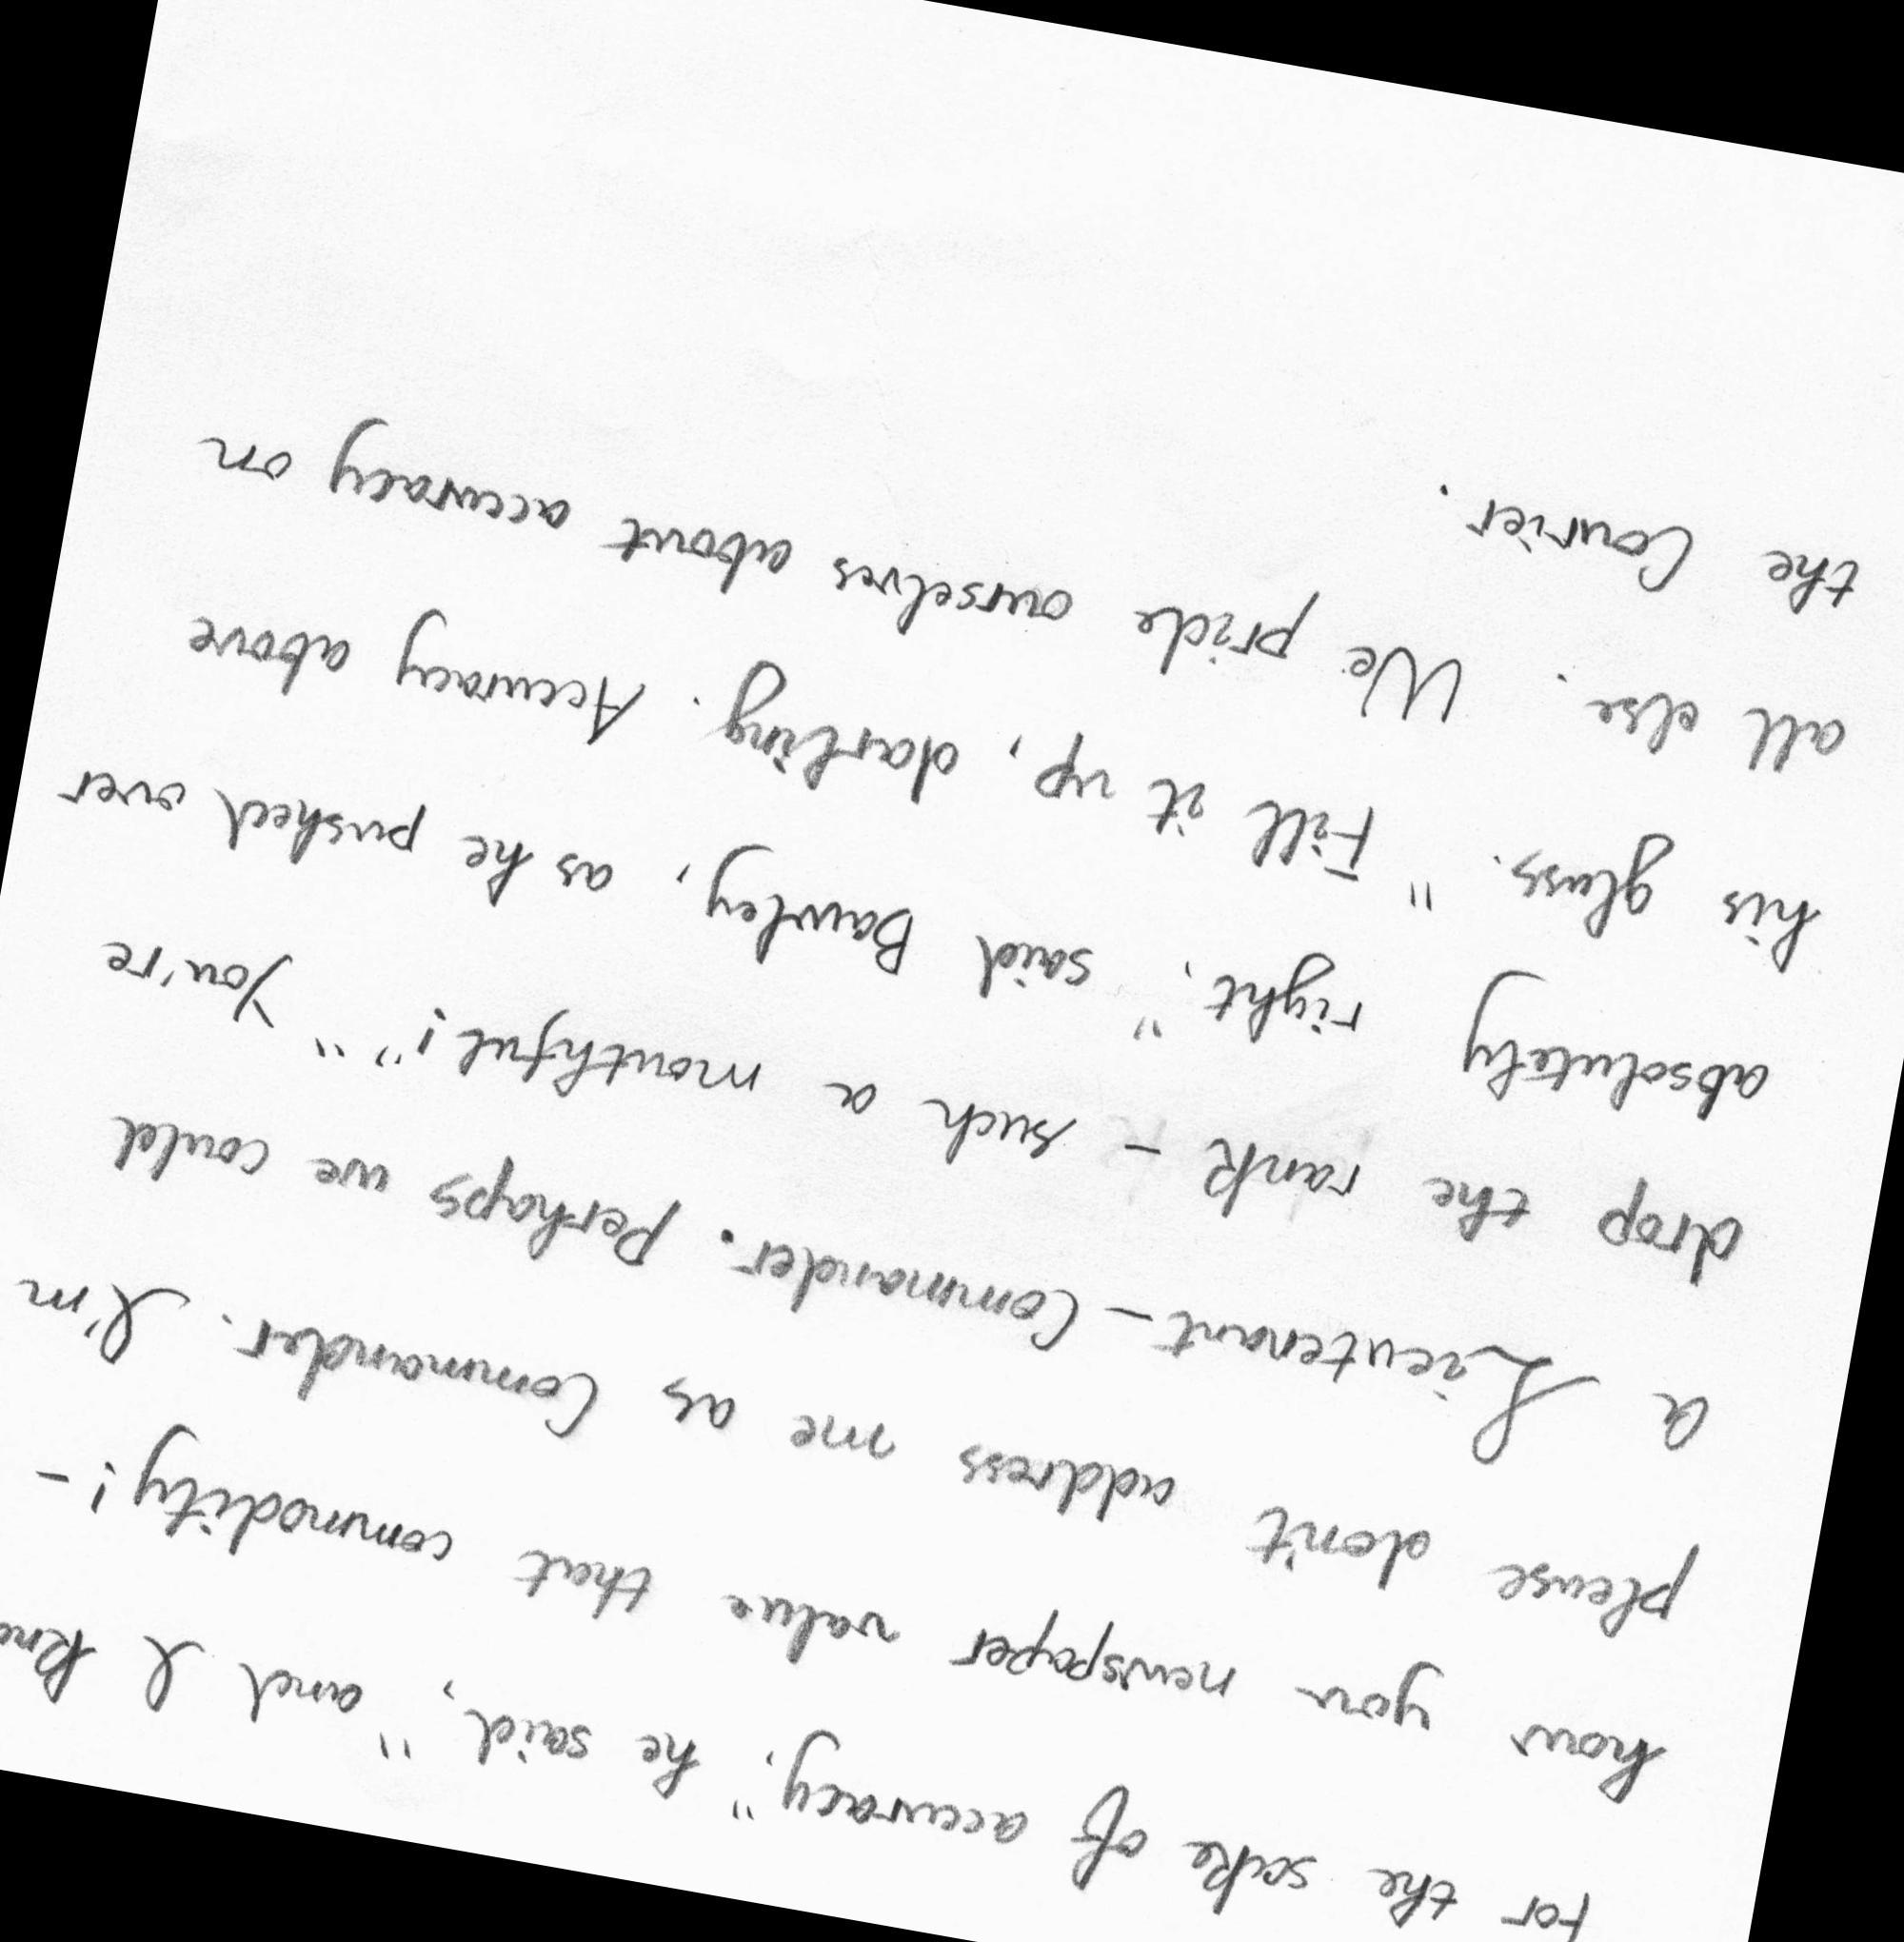 For the sake of accuracy," he said, "and I kno
how you newspaper value that commodity! -
please don't address me as Commander. I'm
a Lieutenant - Commander. Perhaps we could
drop the rank - such a mouthful!" "You're
absolutely right," said Bawley, as he pushed over
his glass. "Fill it up, darling. Accuracy above
all else. We pride ourselves about accuracy on
the Courier.